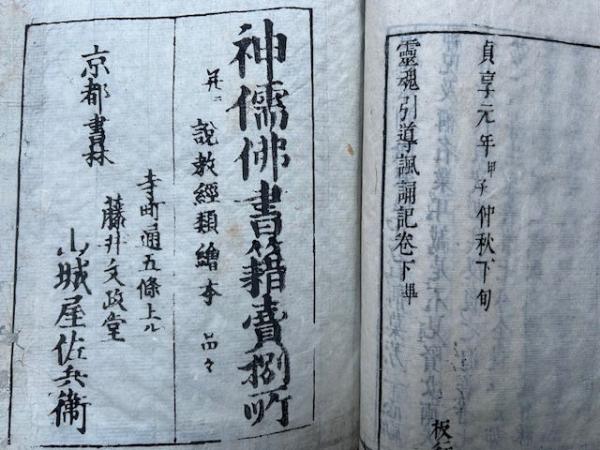 貞享元年甲子仲秋下旬
板
靈魂引導諷誦記卷下畢
神儒佛書籍賣捌所
并ニ 說教經類繪本 品々
京都書林
寺町通五條上ル
藤井文政堂
山城屋佐兵衞